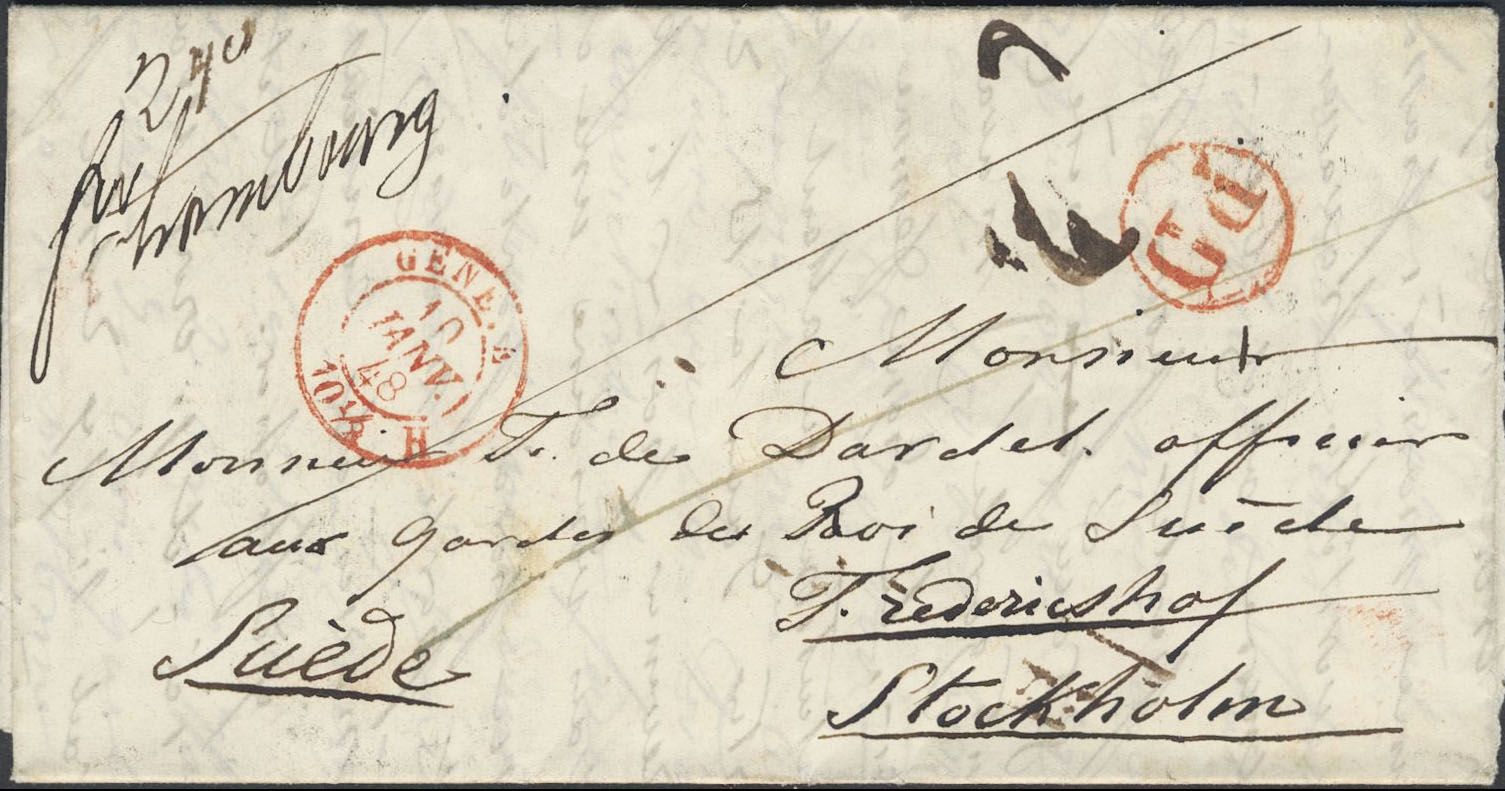 240
hambourg
GENÈVE
10
JANV.
48
10½ H
Gd
Monsieur
Monsieur Fr. de Dardel. officier
aux gardes du Roi de Suède
Fredericshof
Suède
Stockholm